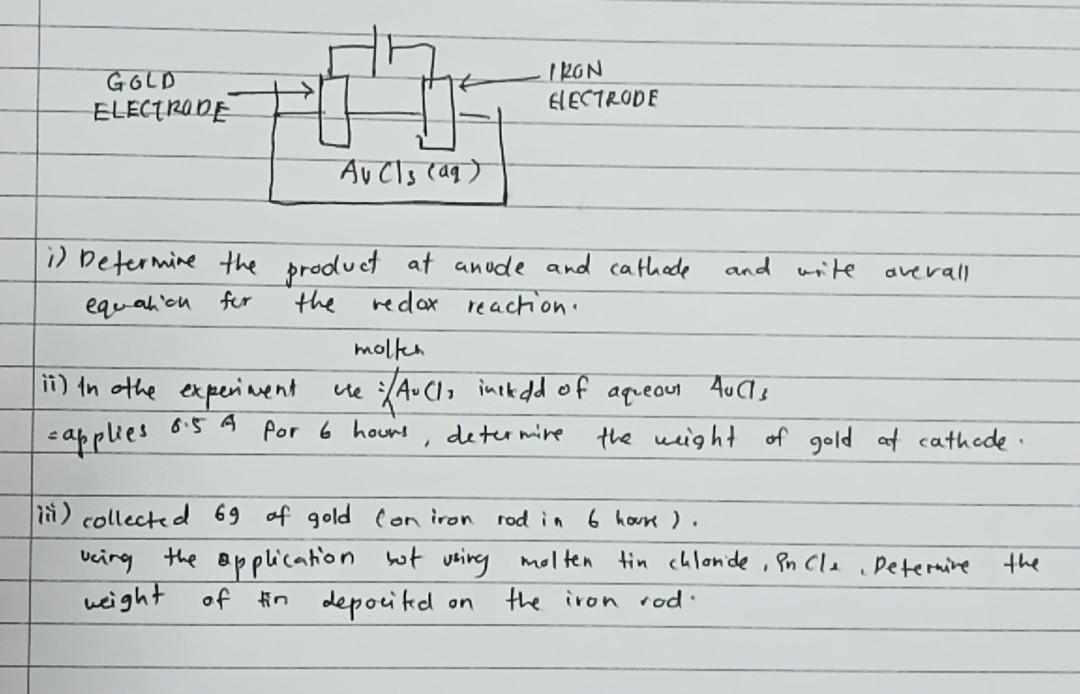 GOLD
ELECTRODE
IRON
ELECTRODE
AuCl3 (aq)
i) Determine the product at anode and cathode and write overall
equation for the redox reaction.
molten
ii) In othe experiment use AuCl3 instedd of aqueous AuCl3
=applies 6.5 A for 6 hours, determine the weight of gold at cathode.
iii) collected 6g of gold (on iron rod in 6 hours).
using the application but using molten tin chloride, SnCl2. Determine the
weight of tin deposited on the iron rod.